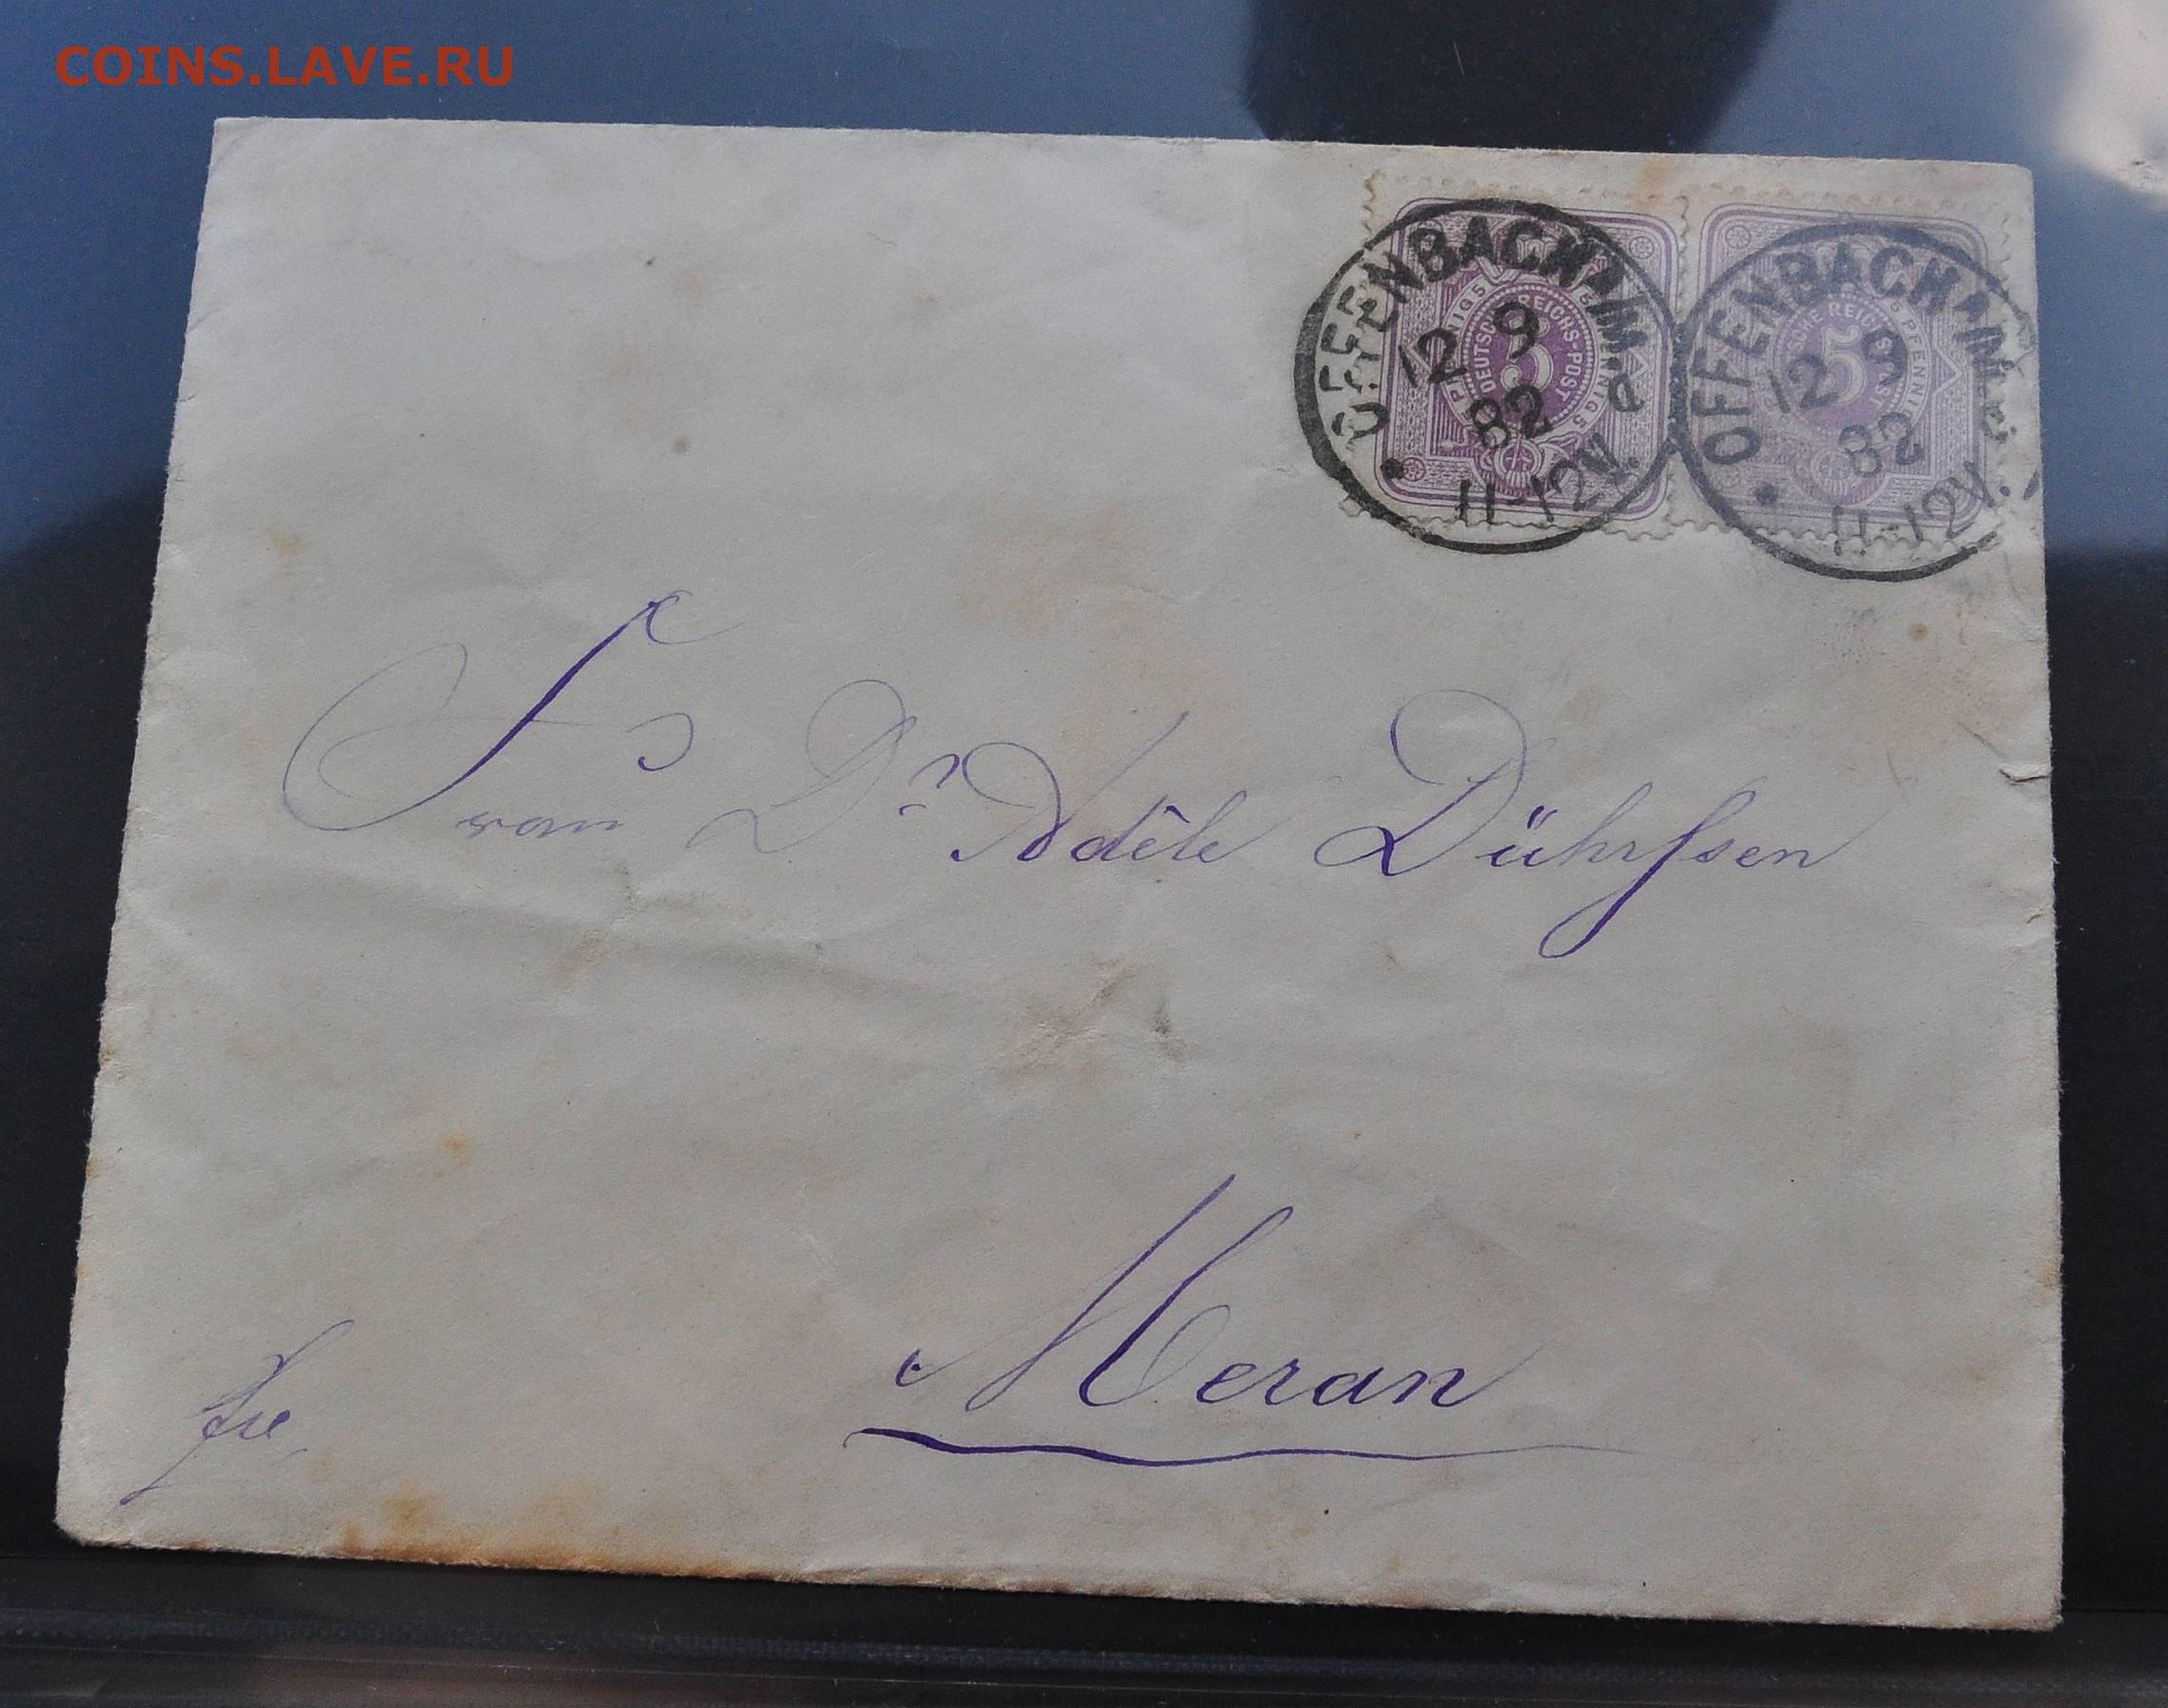 COINS.LAVE.RU
OFFENBACH A/M. e
12 9
82
11-12V.
PFENNIG 5
DEUTSCHE REICHS-POST
5
OFFENBACH A/M. e
12 9
82
11-12V.
5 PFENNIG
5
Frau Dr Adèle Dührssen
Meran